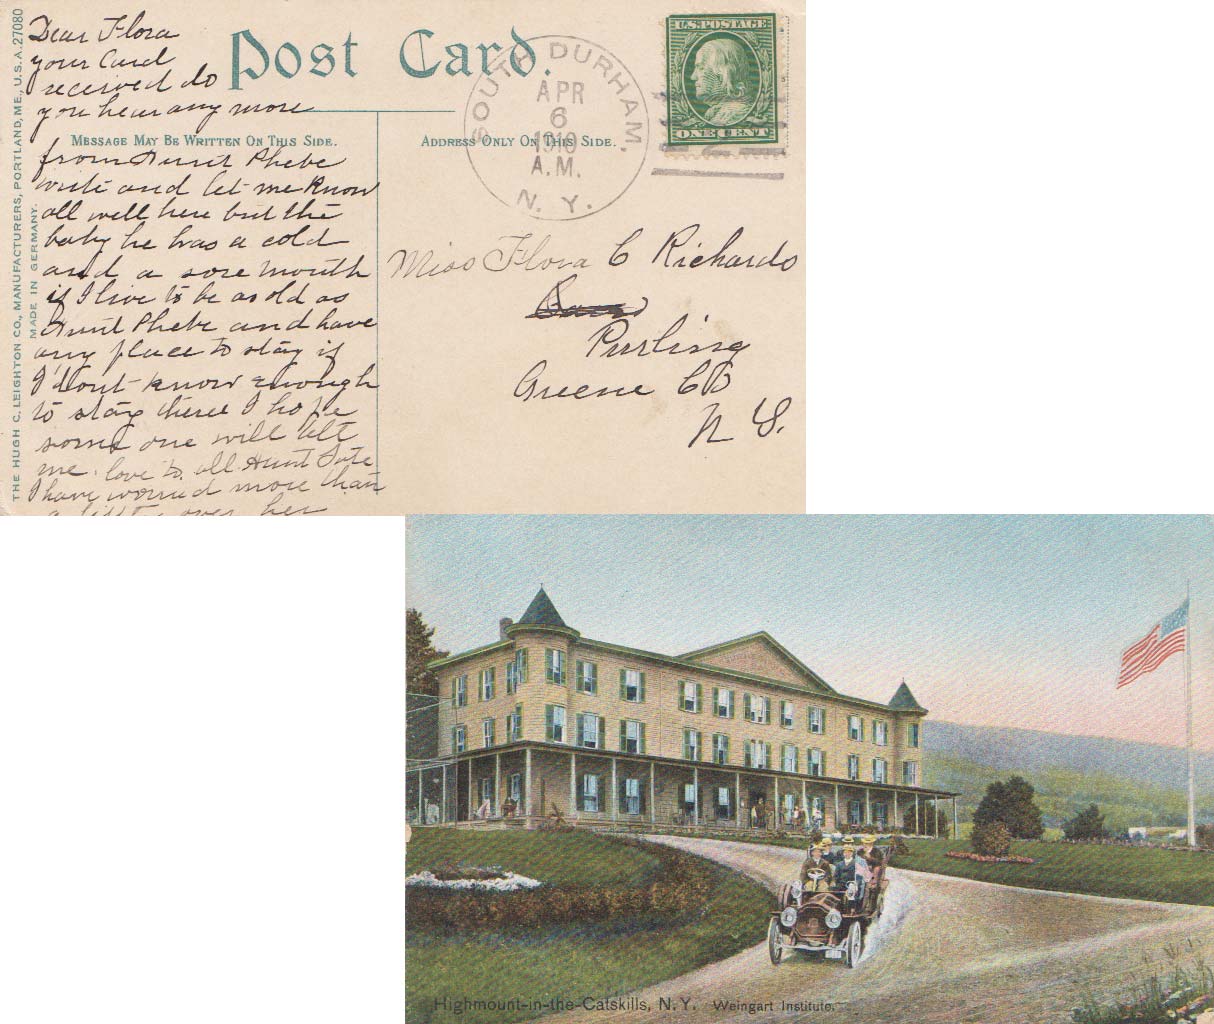 THE HUGH C. LEIGHTON CO., MANUFACTURERS, PORTLAND, ME., U.S.A. 27080
MADE IN GERMANY.
Post Card.
MESSAGE MAY BE WRITTEN ON THIS SIDE.
ADDRESS ONLY ON THIS SIDE.
Dear Flora
your Card
received do
you hear any more
from Aunt Phebe
write and let me know
all well here but the
baby he has a cold
and a sore mouth
if I live to be as old as
Aunt Phebe and have
any place to stay if
I dont know enough
to stay there I hope
some one will
me. love to all Aunt
I have worried more than
a little over her
SOUTH DURHAM,
APR
6
1910
A.M.
N. Y.
U.S. POSTAGE
ONE CENT
Miss Flora C Richards
Purling
Greene Co
N Y.
Highmount-in-the-Catskills, N.Y. Weingart Institute.